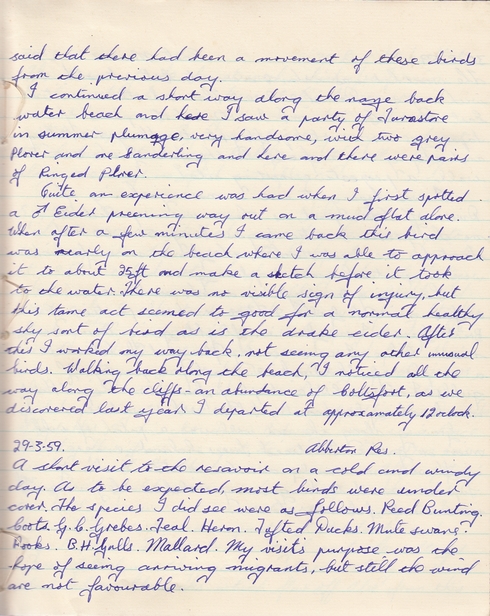 said that there had been a movement of these birds
from the previous day.
I continued a short way along the naze back
water beach and here I saw a party of Turnstone
in summer plumage, very handsome, with two grey
Plover and one Sanderling and here and there were pairs
of Ringed Plover.
Quite an experience was had when I first spotted
a ♂ Eider preening way out on a mud flat alone.
When after a few minutes I came back this bird
was nearly on the beach where I was able to approach
it to about 25ft and make a sketch before it took
to the water. There was no visible sign of injury, but
this tame act seemed to good for a normal healthy
shy sort of bird as is the drake eider. After
this I worked my way back, not seeing any other unusual
birds. Walking back along the beach, I noticed all the
way along the cliffs - an abundance of Coltsfoot, as we
discovered last year. I departed at approximately 12 oclock.
29-3-59. Abberton Res.
A short visit to the resavoir on a cold and windy
day. As to be expected most birds were under
cover. The species I did see were as follows. Reed Bunting.
Coots. G. C. Grebes. Teal. Heron. Tufted Ducks. Mute swans.
Rooks. B. H. Gulls. Mallard. My visits purpose was the
hope of seeing arriving migrants, but still the wind
are not favourable.